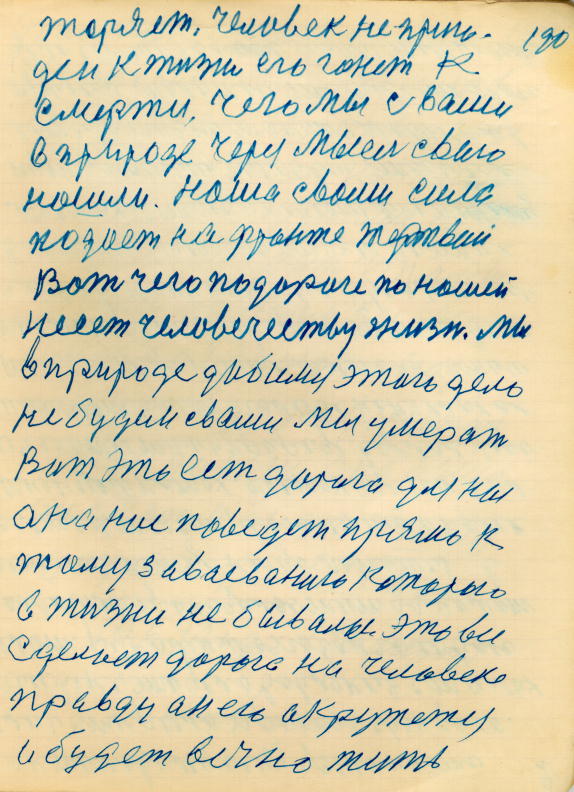 теряет. Человек не приго- 190
ден к жизни его гонет к
смерти, чего мы с вами
в природе через мысел свою
нашли. Наша с вами сила
подает на фронте жертвай
Вот чего по дороге по нашей
несет человечеству жизн. Мы
в природе добемся этого дело
не будем с вами мы умерат
Вот это ест дорога для нас
она нас поведет прямо к
тому заваеванию которого
в жизни не бывала. Это все
сделает дорога на человеке
правду он его окружет
и будет вечно жить